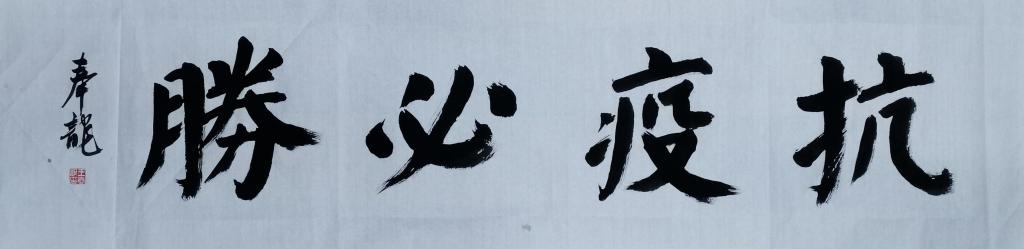 抗疫必勝
奉龍